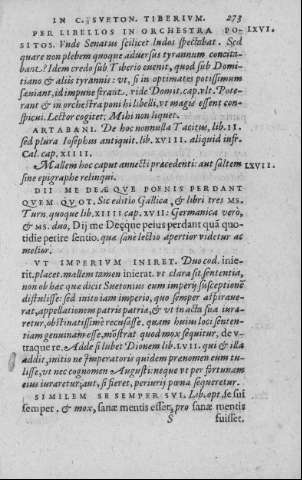 IN C. SVETON. TIBERIVM. 273
PER LIBELLOS IN ORCHESTRA PO LXVI.
SITOS. Vnde Senatus scilicet ludos spectabat. Sed
quare non plebem quoque aduersus tyrannum concita-
bant? Idem credo sub Tiberio euenit, quod sub Domi-
tiano & aliis tyrannis: vt, si in optimates potissimum
sæuiant, id impune sit. vide Domit. cap. vlt. Pote-
rant & in orchestra poni hi libelli, vt magis essent con-
spicui. Lector cogitet; Mihi non liquet.
ARTABANI. De hoc nonnulla Tacitus, lib. II.
sed plura Iosephus antiquit. lib. XVIII. aliquid infr.
Cal. cap. XIIII.
Mallem hoc caput annecti præcedenti: aut saltem LXVII.
sine epigraphe relinqui.
DII ME DEÆQVE POENIS PERDANT
QVEM QVOT. Sic editio Gallica, & libri tres MS.
Turn. quoque lib. XIIII. cap. XVII: Germanica vero,
& MS. duo, Dij me Deęque peius perdant quā quo-
tidie perire sentio. quæ sane lectio apertior videtur ac
melior.
VT IMPERIVM INIRET. Duo cod. inie-
rit. placet. mallem tamen inierat. vt clara sit sententia,
non ob hæc quæ dicit Suetonius eum imperij susceptionē
distulisse: sed initio iam imperio, quo semper aspiraue-
rat, appellationem patris patriæ, & vt in acta sua iura-
retur, obstinatissime recusasse, quam huius loci senten-
tiam genuinam esse, mōstrat quod mox sequitur, de vi-
taque re. Adde si lubet Dionem lib. LVII. qui & illa
addit, initio ne Imperatoris quidem prænomen eum tu-
lisse, vt nec cognomen Augusti: neque vt per fortunam
eius iuraretur; aut, si fieret, periurij pœna sequeretur.
SIMILEM SE SEMPER SVI. Lib. opt. se sui
semper. & mox, sanæ mentis esset, pro sanæ mentis
S fuisset.